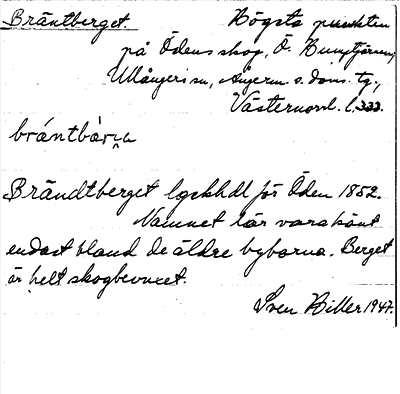 Bräntberget. Högsta punkten
på Ödens skog, Ö. Bungtjärnen,
Ullångers sn, Ångerm. s. doms. tg.,
Västernorrl. l.
bräntbärɡa
Brändtberget lgskhdl för Öden 1852.
Namnet lär vara känt
endast bland de äldre byborna. Berget
är helt skogbevuxet.
Sven Hiller 1947.